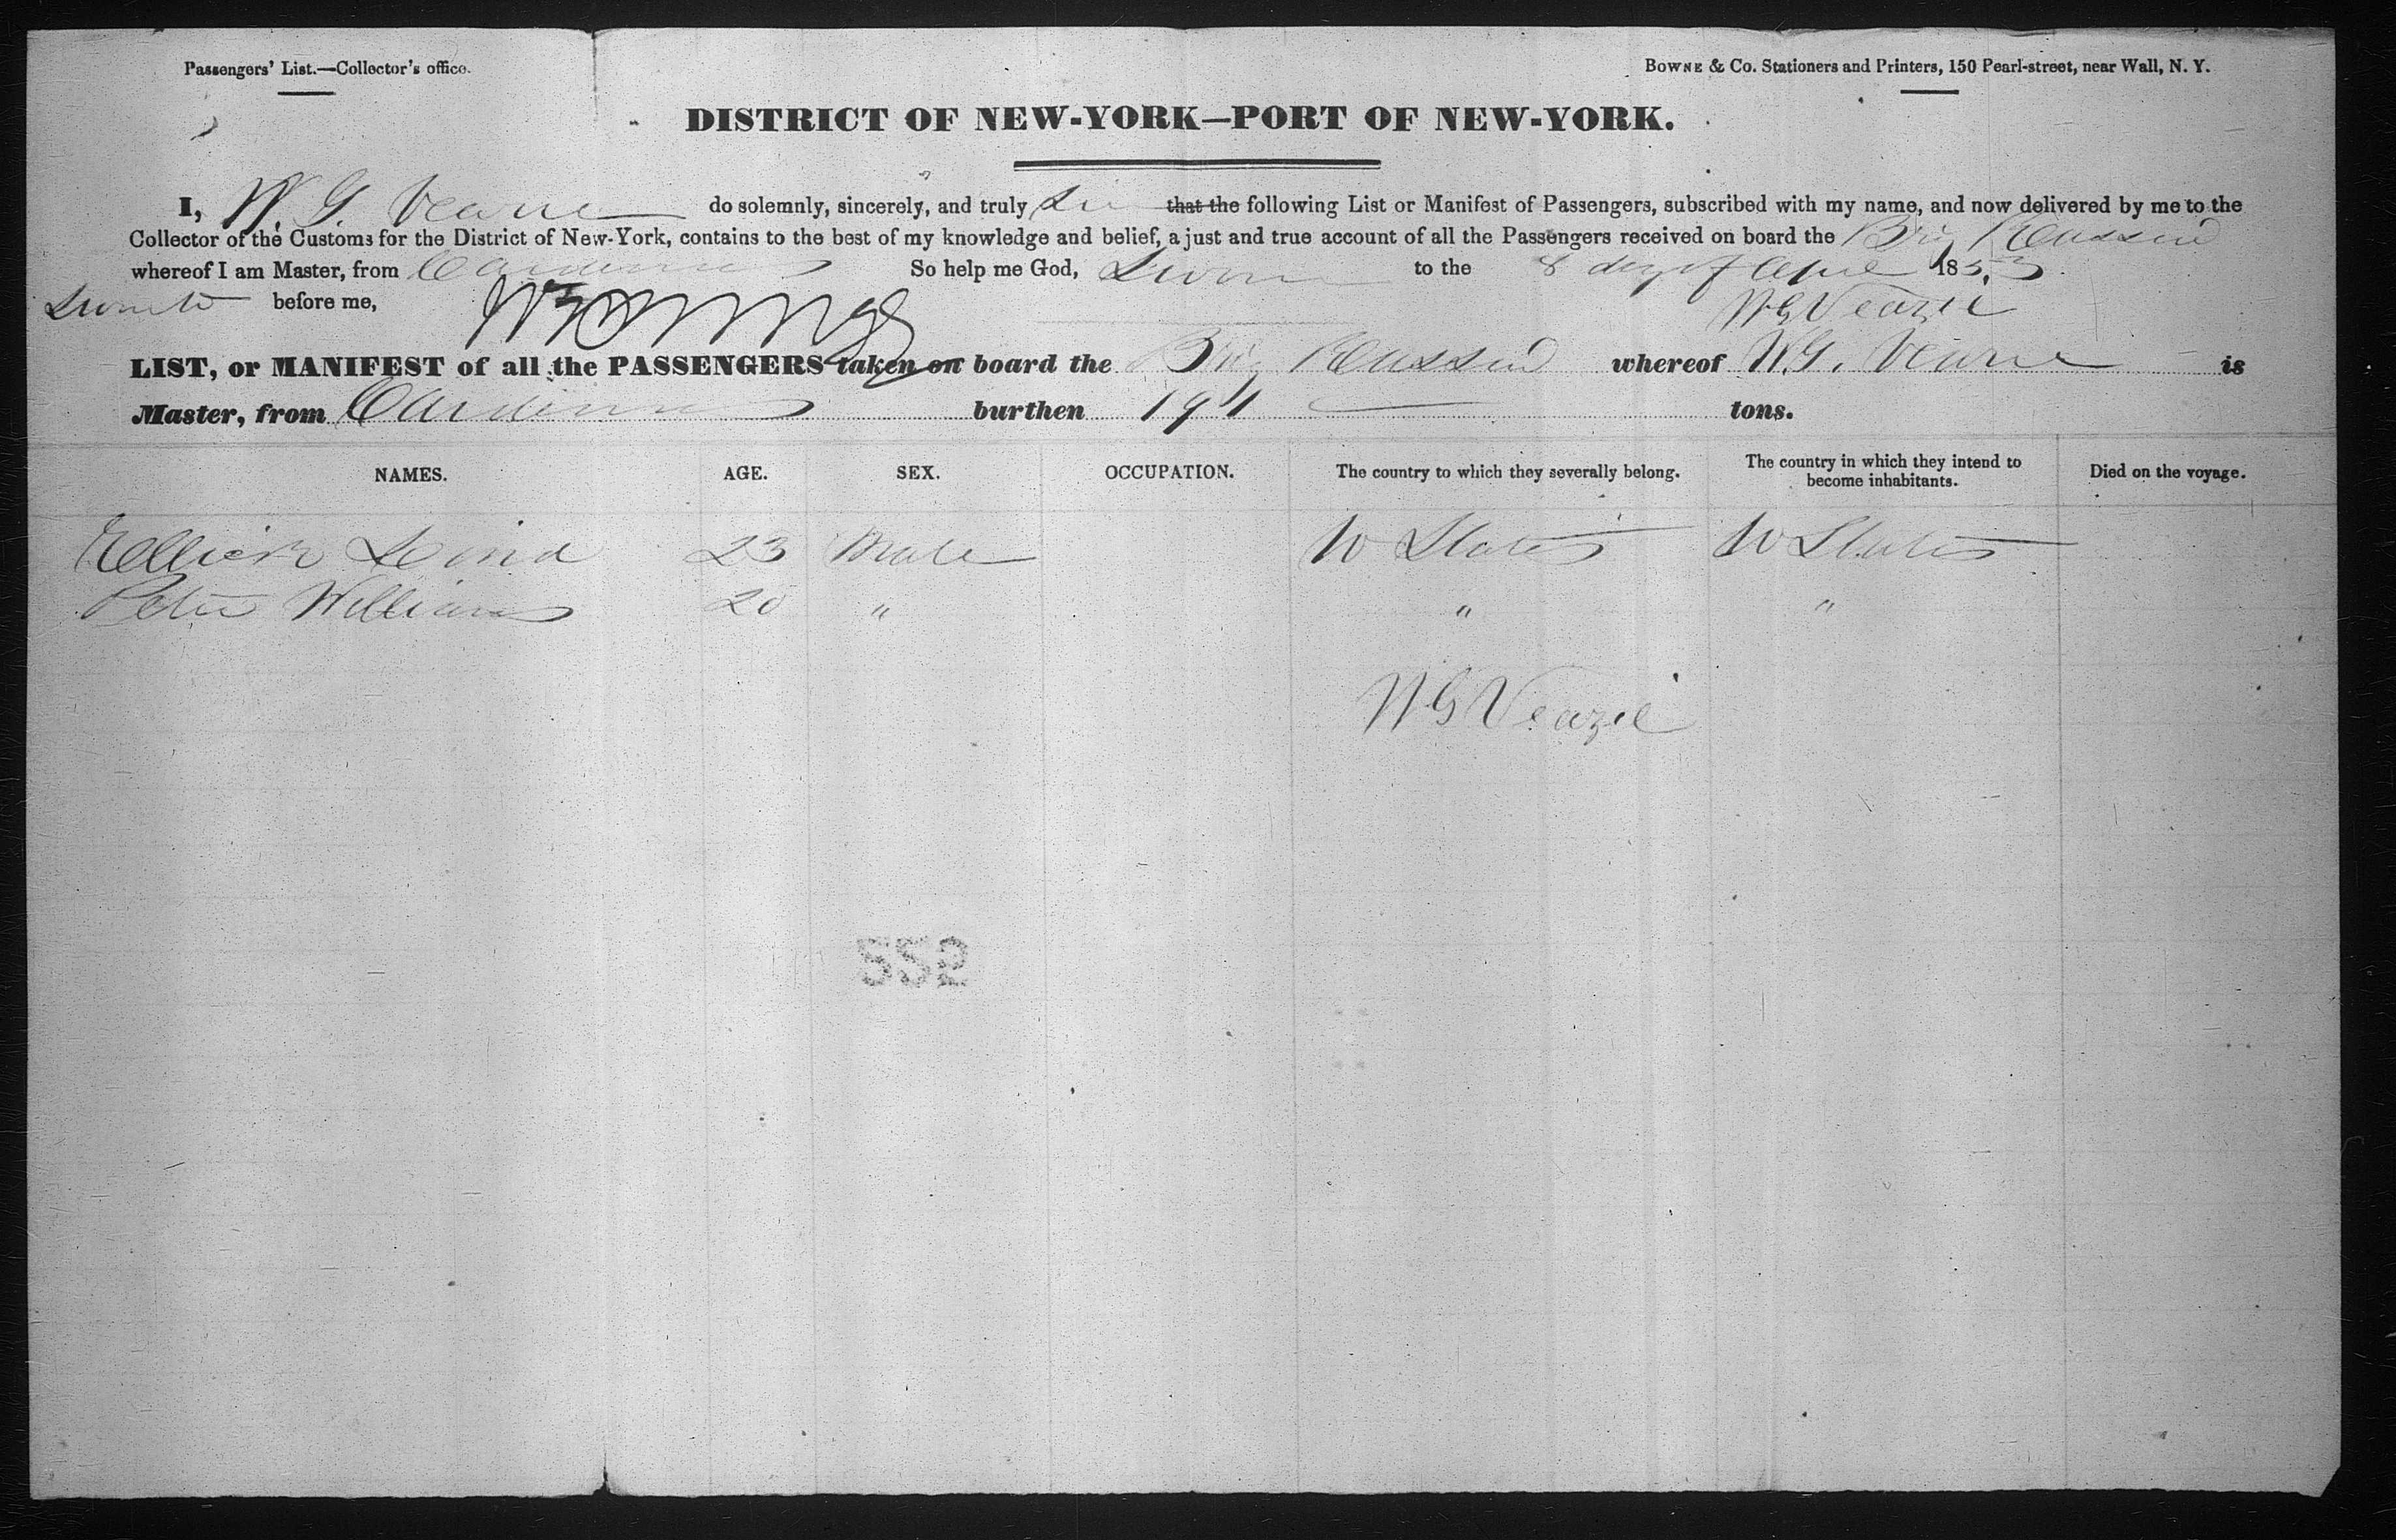 Passengers' List.—Collector's office.
BOWNE & Co. Stationers and Printers, 150 Pearl-street, near Wall, N. Y.
DISTRICT OF NEW-YORK—PORT OF NEW-YORK.
I, W. G. do solemnly, sincerely, and truly that the following List or Manifest of Passengers, subscribed with my name, and now delivered by me to the
Collector of the Customs for the District of New-York, contains to the best of my knowledge and belief, a just and true account of all the Passengers received on board the Brig
whereof I am Master, from Cardenas So help me God, Sworn to the 8 day of April 1853
before me,
W G Veazie
LIST, or MANIFEST of all the PASSENGERS taken on board the Brig whereof W. G. is
Master, from Cardenas burthen 191 tons.
NAMES. AGE. SEX. OCCUPATION. The country to which they severally belong. The country in which they intend to become inhabitants. Died on the voyage.
Ellick 23 Male U States U States
Peter Williams 20 " " "
W G Veazie
552